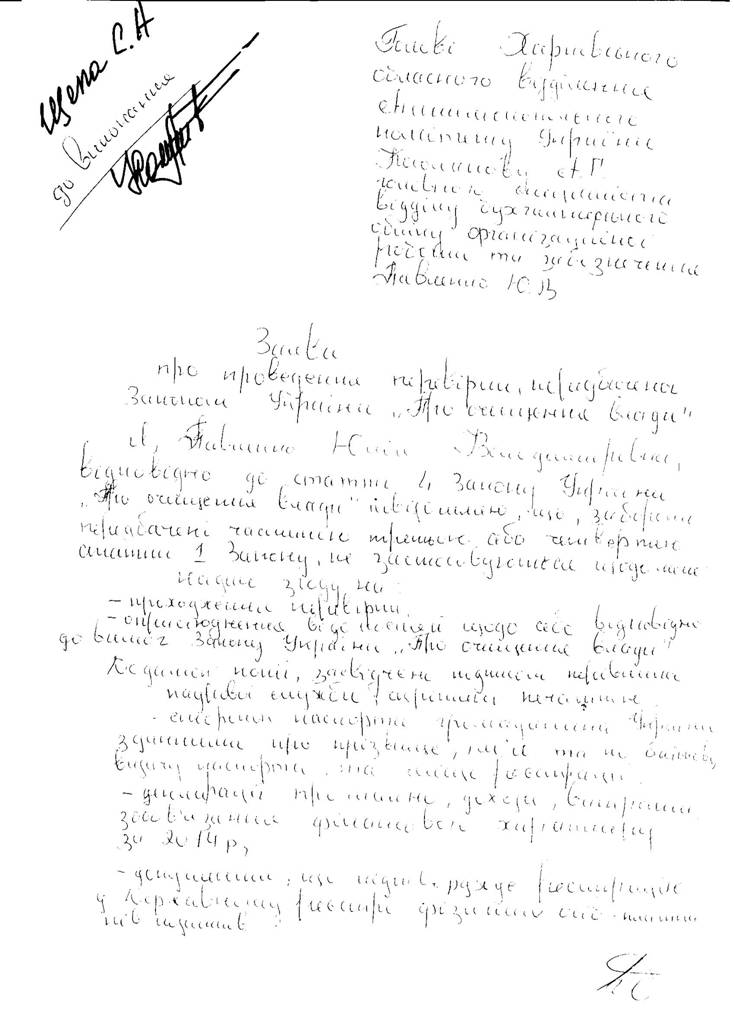 Щепа С.А
до виконання
Голові Харківського
обласного відділення
Антимонопольного
комітету України
А.Г.
головного спеціаліста
відділу бухгалтерського
обліку організаційної
роботи та забезпечення
Павленко Ю.В
Заява
про проведення перевірки, передбаченої
Законом України „Про очищення влади"
Я, Павленко Юлія Володимирівна,
відповідно до статті 4 Закону України
„Про очищення влади" повідомляю, що, заборони
передбачені частиною третьою або четвертою
статті 1 Закону, не застосовуються щодо мене
Надаю згоду на:
- проходження перевірки,
- оприлюднення відомостей щодо себе відповідно
до вимог Закону України „Про очищення влади"
Додатки копії, засвідчені підписом керівника
служби і скріплені печаткою
- сторінок паспорта громадянина України
з даними про прізвище, ім'я та по батькові,
видачу паспорта, та місце реєстрації.
- декларації про майно, доходи, витрати
зобов'язання фінансового характеру
за 2014 р,
- документа, що підтверджує реєстрацію
у Державному реєстрі фізичних осіб-платників
податків